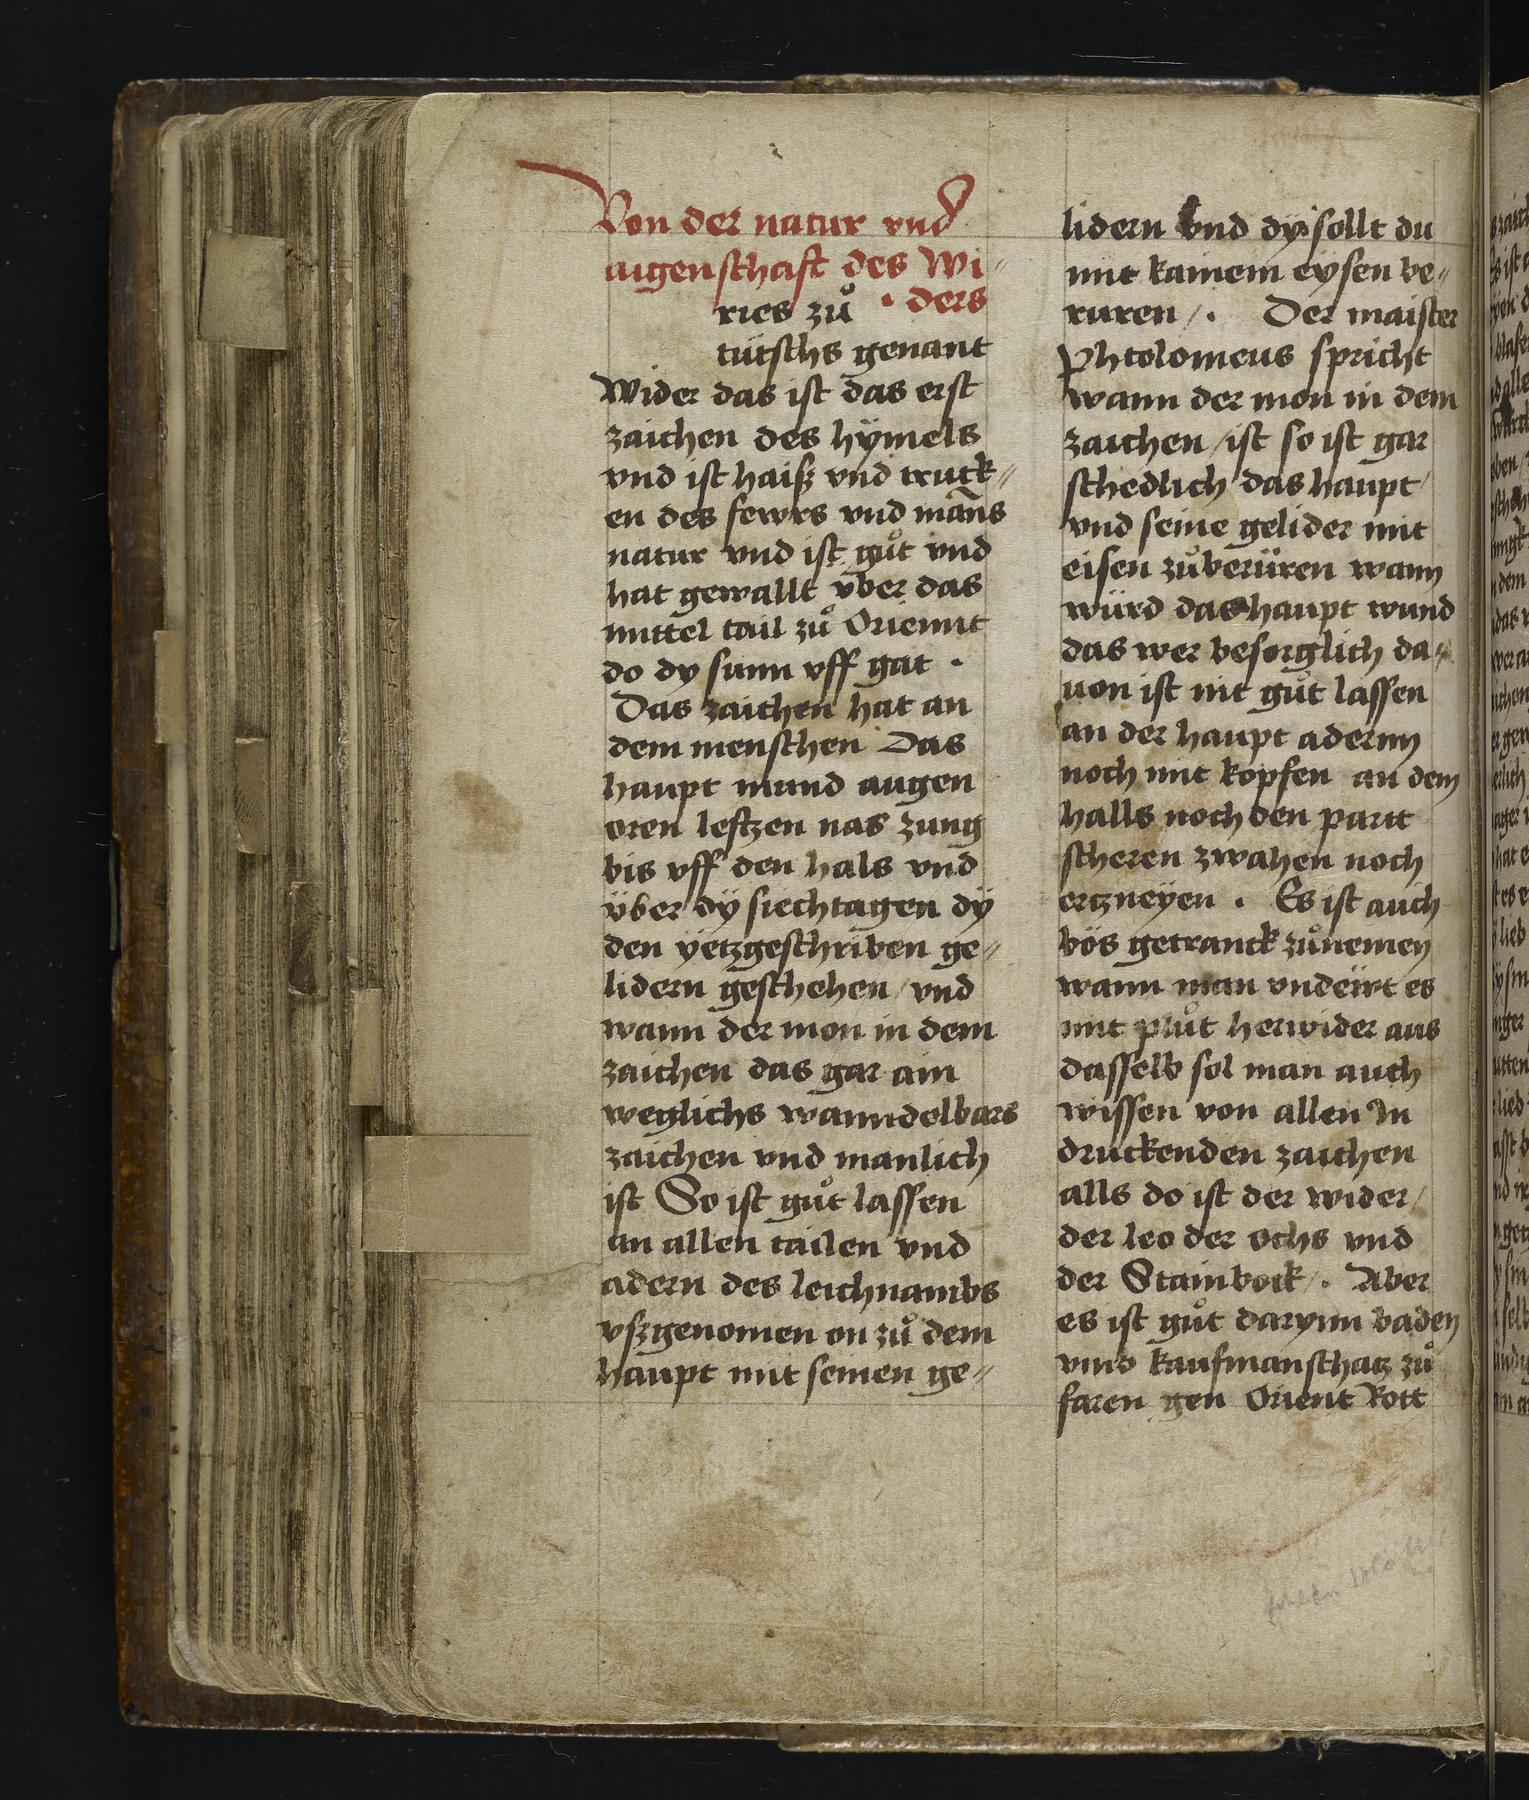 Von der natur vnd
aigenschafft des Wi-
ders
ries zů
tütschs genant
Wider das ist das erst
zaichen des hÿmels
vnd ist haiß vnd truck-
en des fewrs vnd mans
natur vnd ist gůt vnd
hat gewallt über das
mittel tail zů Orienntt
do dy sunn vff gat .
Das zaichen hat an
dem menschen Das
haupt mund augen
oren lefftzen nas zung
bis vff den hals vnd
über dÿ siechtagen dÿ
den yetzgeschriben ge-
lidern geschehen / vnd
wann der mon in dem
zaichen das gar ain
weglichs wanndelbars
zaichen vnd manlich
ist So ist gůt lassen
an allen tailen vnd
adern des leichnambs
vßgenomen on zů dem
haupt mit seinen ge-
lidern vnd dÿ sollt du
mit kainem eÿsen be-
ruren / . Der maister
Phtolomeus spricht
wann der mon in dem
zaichen / ist so ist gar
schedlich das haupt /
vnd seine gelider mit
eisen zů berüren wann
würd das haupt wund
das wer besorglich da-
uon ist nit gůt lassen
an der haupt adernn
noch mit kopfen an dem
halls noch den partt
scheren zwahen noch
ertzneÿen . Es ist auch
bös getranck zů nemen
wann man vndeüwt es
mit plůt herwider aus
dasselb sol man auch
wissen von allen In
druckenden zaichen
alls do ist der wider /
der leo der ochs vnd
der Stainbock / . Aber
es ist gůt darynn baden
vmb kaufmanschatz zů
faren gen Orient Rott